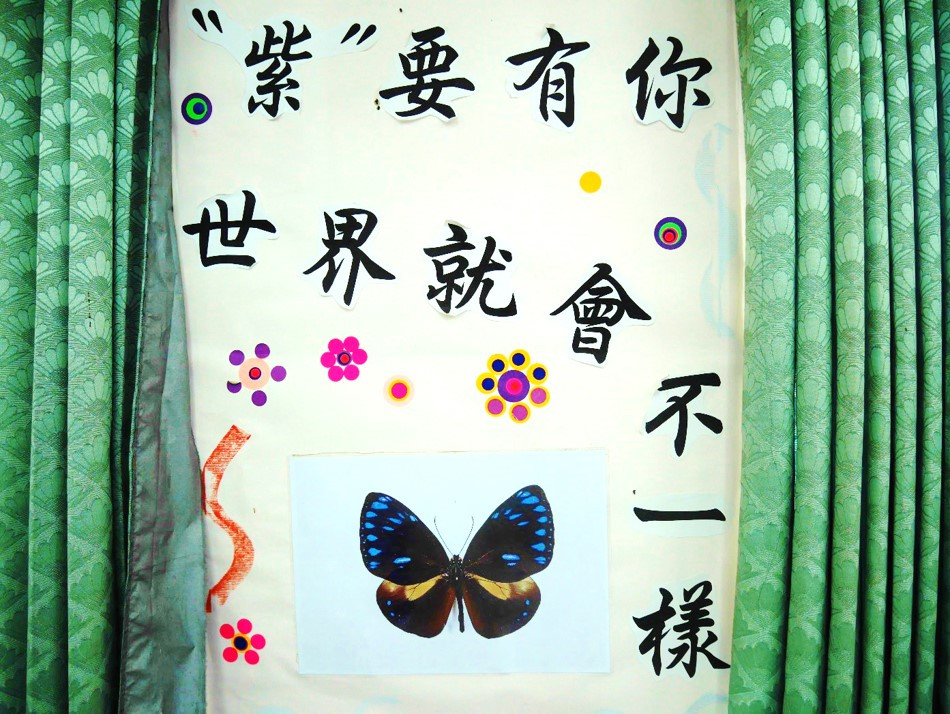 "紫"要有你
世界就會不一樣